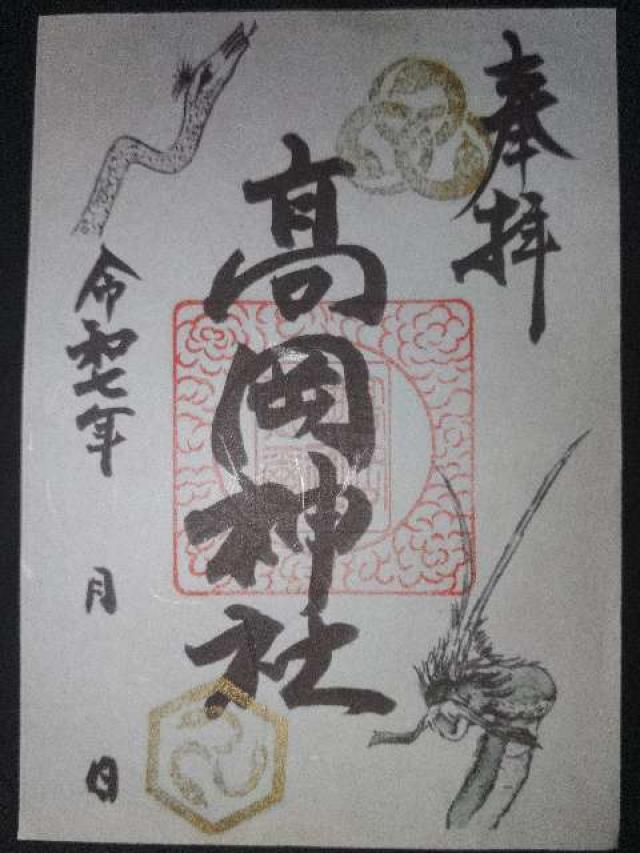 奉拝
高岡神社
令和七年 月 日